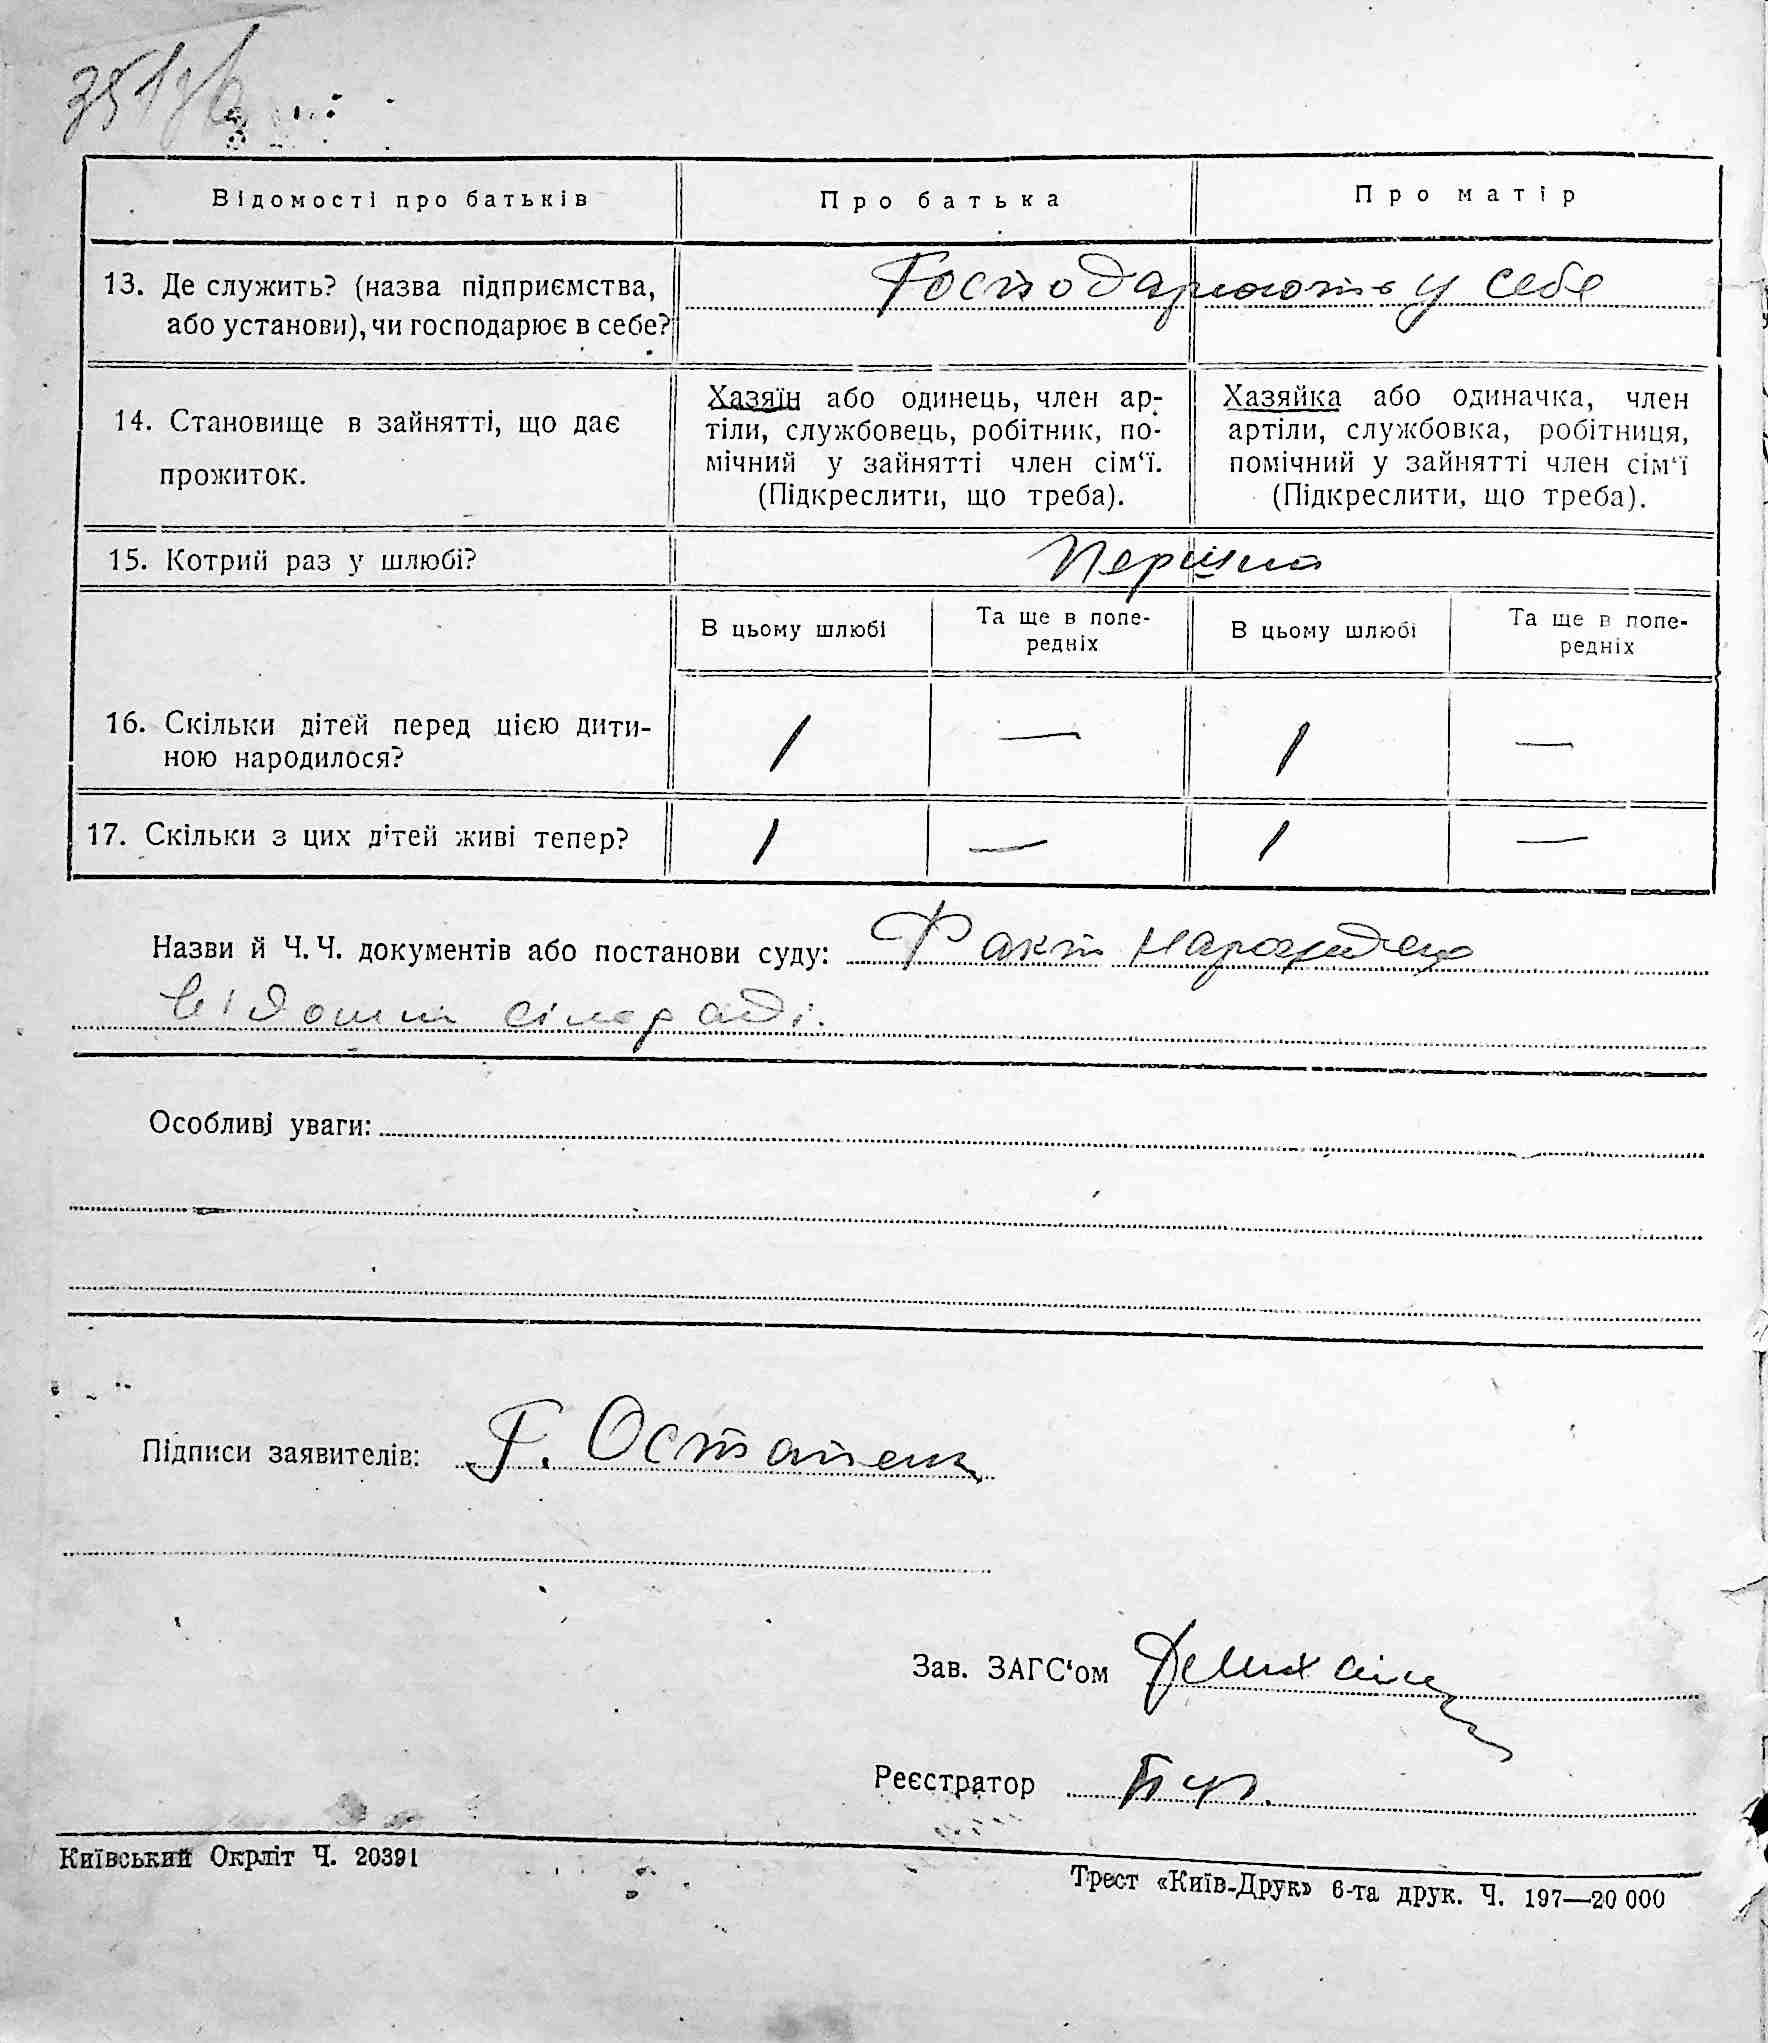 351
Відомості про батьків
Про батька
Про матір
13. Де служить? (назва підприємства,
або установи), чи господарює в себе?
Господарюють у себе
14. Становище в зайнятті, що дає
прожиток.
Хазяїн або одинець, член ар-
тіли, службовець, робітник, по-
мічний у зайнятті член сім‘ї.
(Підкреслити, що треба).
Хазяйка або одиначка, член
артіли, службовка, робітниця,
помічний у зайнятті член сім‘ї
(Підкреслити, що треба).
15. Котрий раз у шлюбі?
Перший
В цьому шлюбі
Та ще в попе-
редніх
В цьому шлюбі
Та ще в попе-
редніх
16. Скільки дітей перед цією дити-
ною народилося?
1 — 1 —
17. Скільки з цих дітей живі тепер?
1 — 1 —
Назви й Ч. Ч. документів або постанови суду: Факт народження
відомий сільраді.
Особливі уваги:
Підписи заявителів: Г. Остапенк
Зав. ЗАГС‘ом
Реєстратор
Київський Окрліт Ч. 20391
Трест «Київ-Друк» 6-та друк. Ч. 197—20 000